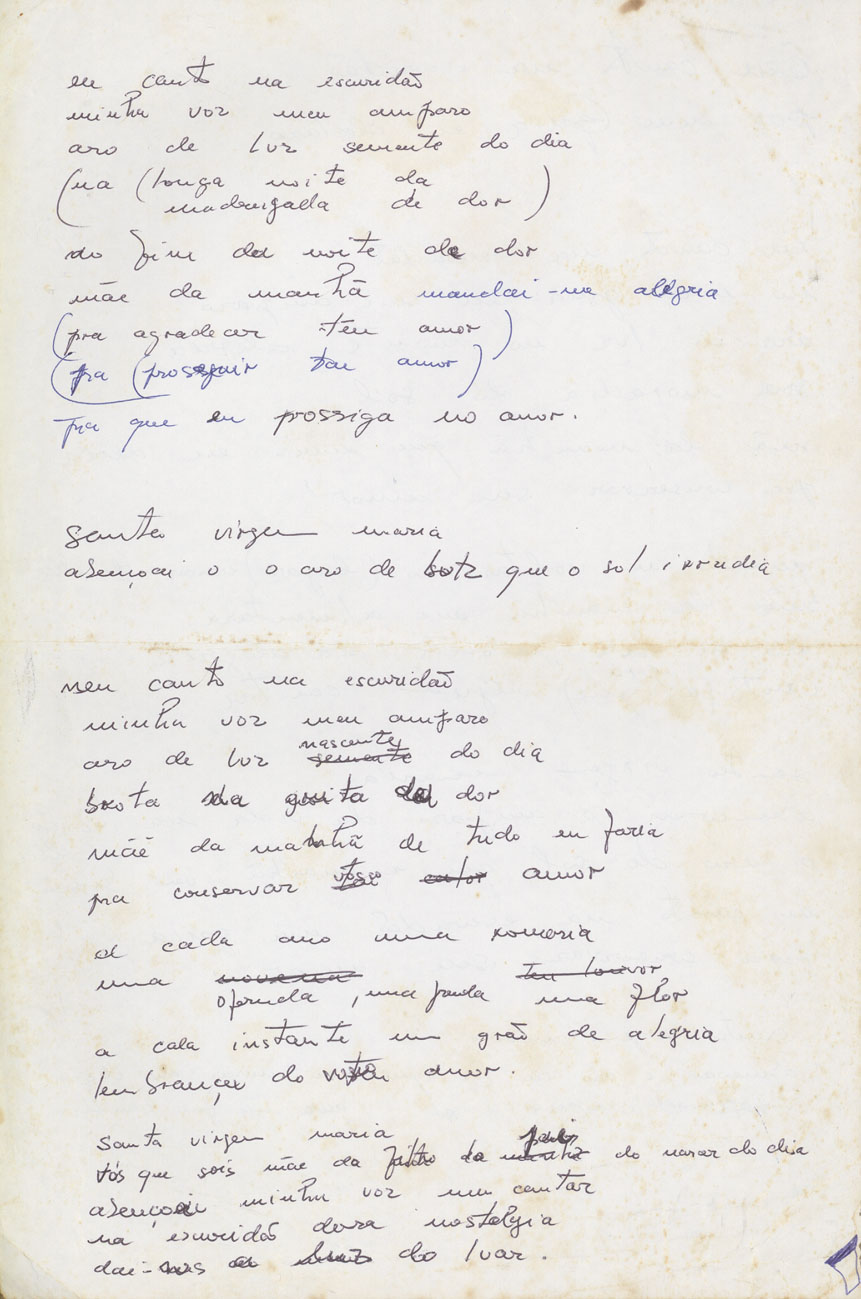 eu canto na escuridão
minha voz meu amparo
aro de luz semente do dia
(na (longa noite da
madrugada de dor)
no fim da noite de dor
mãe da manhã mandai-me alegria
(pra agradecer teu amor)
(pra (prosseguir teu amor)
pra que eu prossiga no amor.
santa virgem maria
abençoai o o aro de luz que o sol irradia
meu canto na escuridão
minha voz meu amparo
nascente
aro de luz semente do dia
brota da gruta da dor
mãe da manhã de tudo eu faria
pra conservar vosso calor amor
a cada ano uma romaria
uma novena teu louvor
oferenda, uma prenda uma flor
a cada instante um grão de alegria
lembrança do vosso amor.
santa virgem maria
vós que sois mãe do filho do do nascer do dia
abençoai minha voz meu cantar
na escuridão dessa nostalgia
dai-nos a luz do luar.